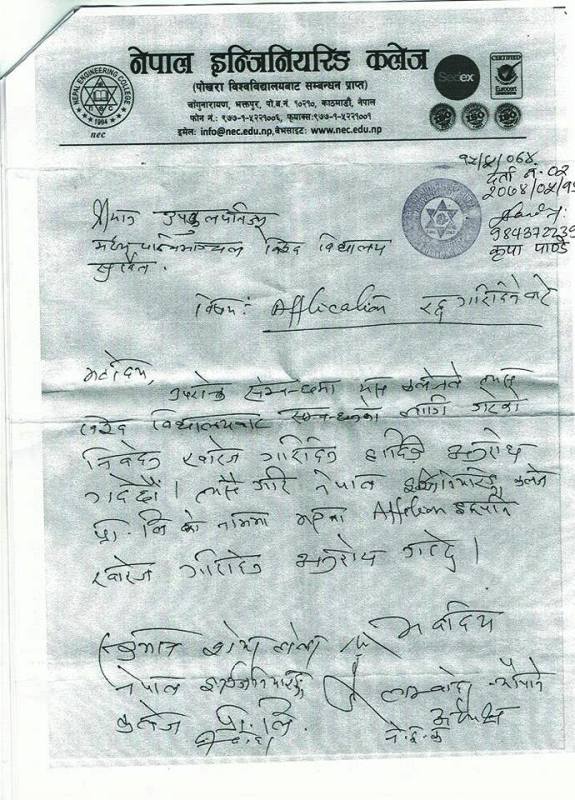 नेपाल इन्जिनियरिङ कलेज
(पोखरा विश्वविद्यालयबाट सम्बन्धन प्राप्त)
चाँगुनारायण, भक्तपुर, पो.ब.नं. १०२१०, काठमाडौं, नेपाल
फोन नं.: ९७७-१-५२२१००६, फ्याक्सः९७७-१-५२२१००१
इमेल: info@nec.edu.np,वेभसाइट: www.nec.edu.np
NEPAL ENGINEERING COLLEGE
1994
nec
Sedex
CERTIFIED
ISO ISO ISO
दर्ता नं. ०२
कृपा पाण्डे
श्रीमान उपकुलपतिज्यू
मध्य पश्चिमाञ्चल विश्व विद्यालय
सुर्खेत.
विषय: Affiliation रद्द गरिदिने बारे
महोदय,
उपरोक्त सम्बन्धमा यस कलेजले त्यस
विश्व विद्यालयबाट सम्बन्धनको लागि गरेको
निवेदन खारेज गरिदिनु हुदिन अनुरोध
गर्दछौं। त्यसै गरि नेपाल इन्जिनियरिङ्ग कलेज
प्रा.लि को नाममा Affiliation
खारेज गरिदिन अनुरोध गर्दछु।
भवदिय
नेपाल इन्जिनियरिङ्ग
कलेज प्रा.लि.
लम्बोदर न्यौपाने
अध्यक्ष
ने.इ.क